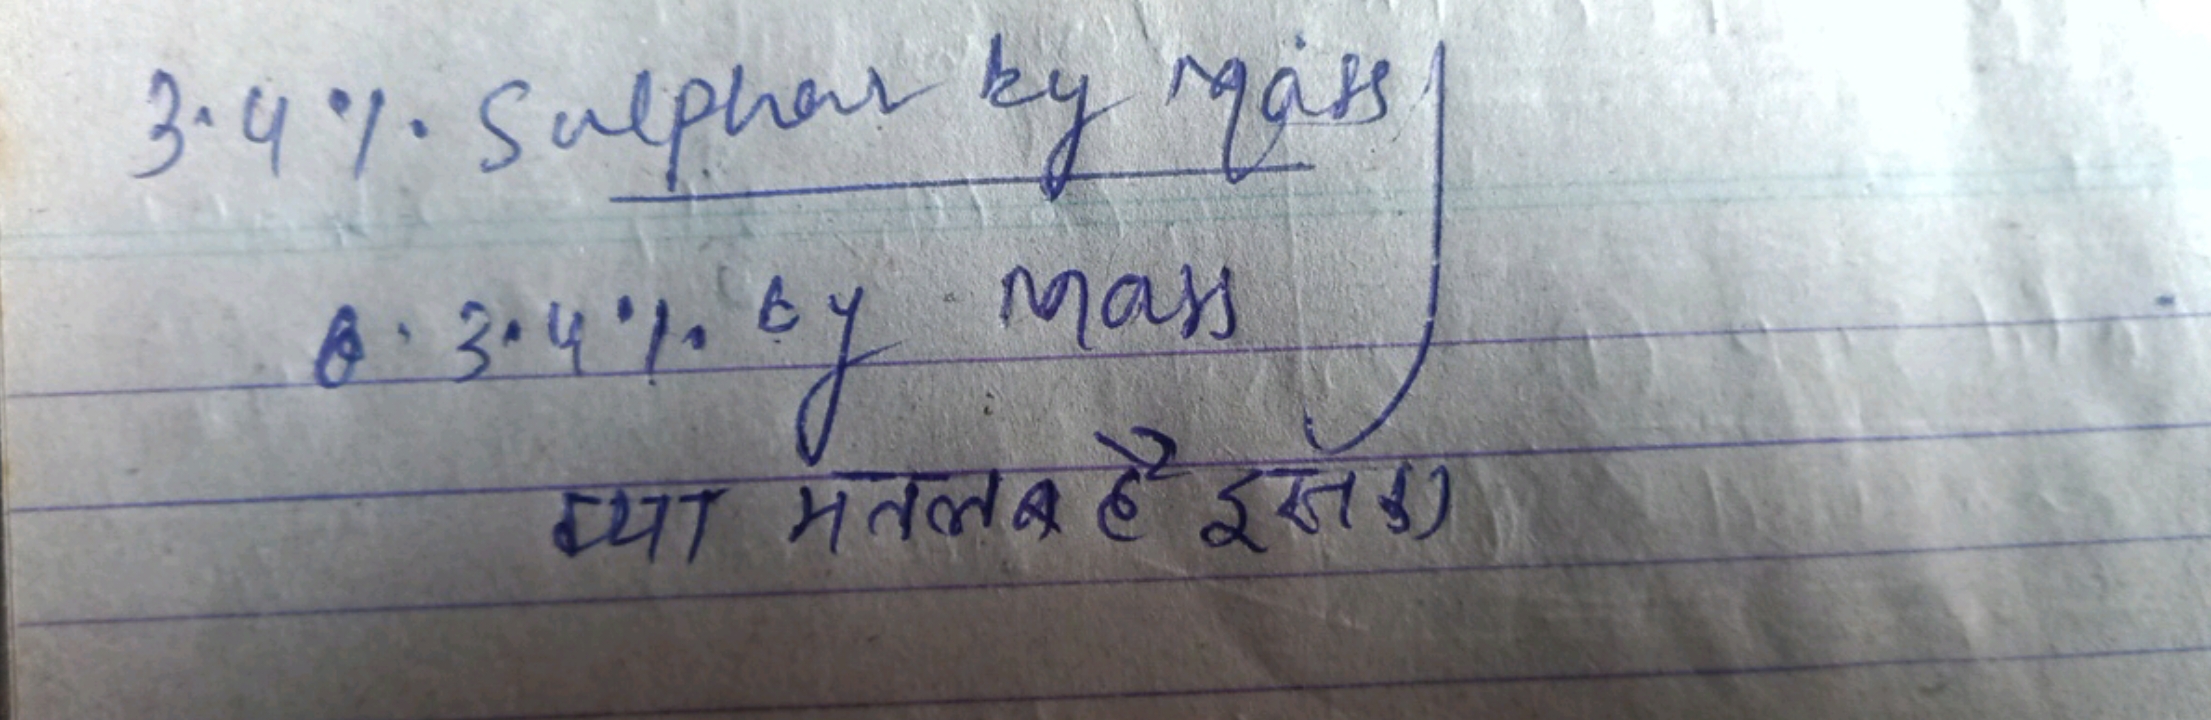 3.4%. Sulphur by mass
3.4%. by mass
क्या मतलब है इसका